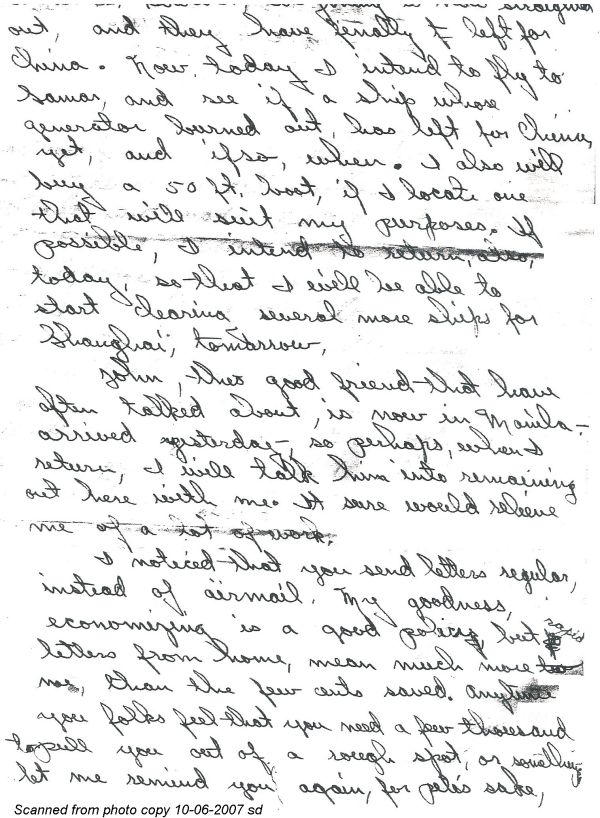 straighten
out, and they have finally left for
China. Now, today I intend to fly to
Samar, and see if a ship whose
generator burned out, has left for China,
yet, and ifso, when. I also will
buy a 50 ft. boat, if I locate one
that will suit my purposes. If
possible, I intend to return, also,
today, so that I will be able to
start clearing several more ships for
Shanghai, tomorrow,
John, the good friend that have
often talked about, is now in Manila-
arrived yesterday-, so perhaps, when I
return, I will talk him into remaining
out here with me. It sure would relieve
me of a lot of work.
I noticed that you send letters regular,
instead of airmail. My goodness,
economizing is a good policy, but
letters from home, mean much more to
me, than the few cents saved. Anytime
you folks feel that you need a few thousand
to pull you out of a rough spot, or something,
let me remind you again, for petes sake,
Scanned from photo copy 10-06-2007 sd